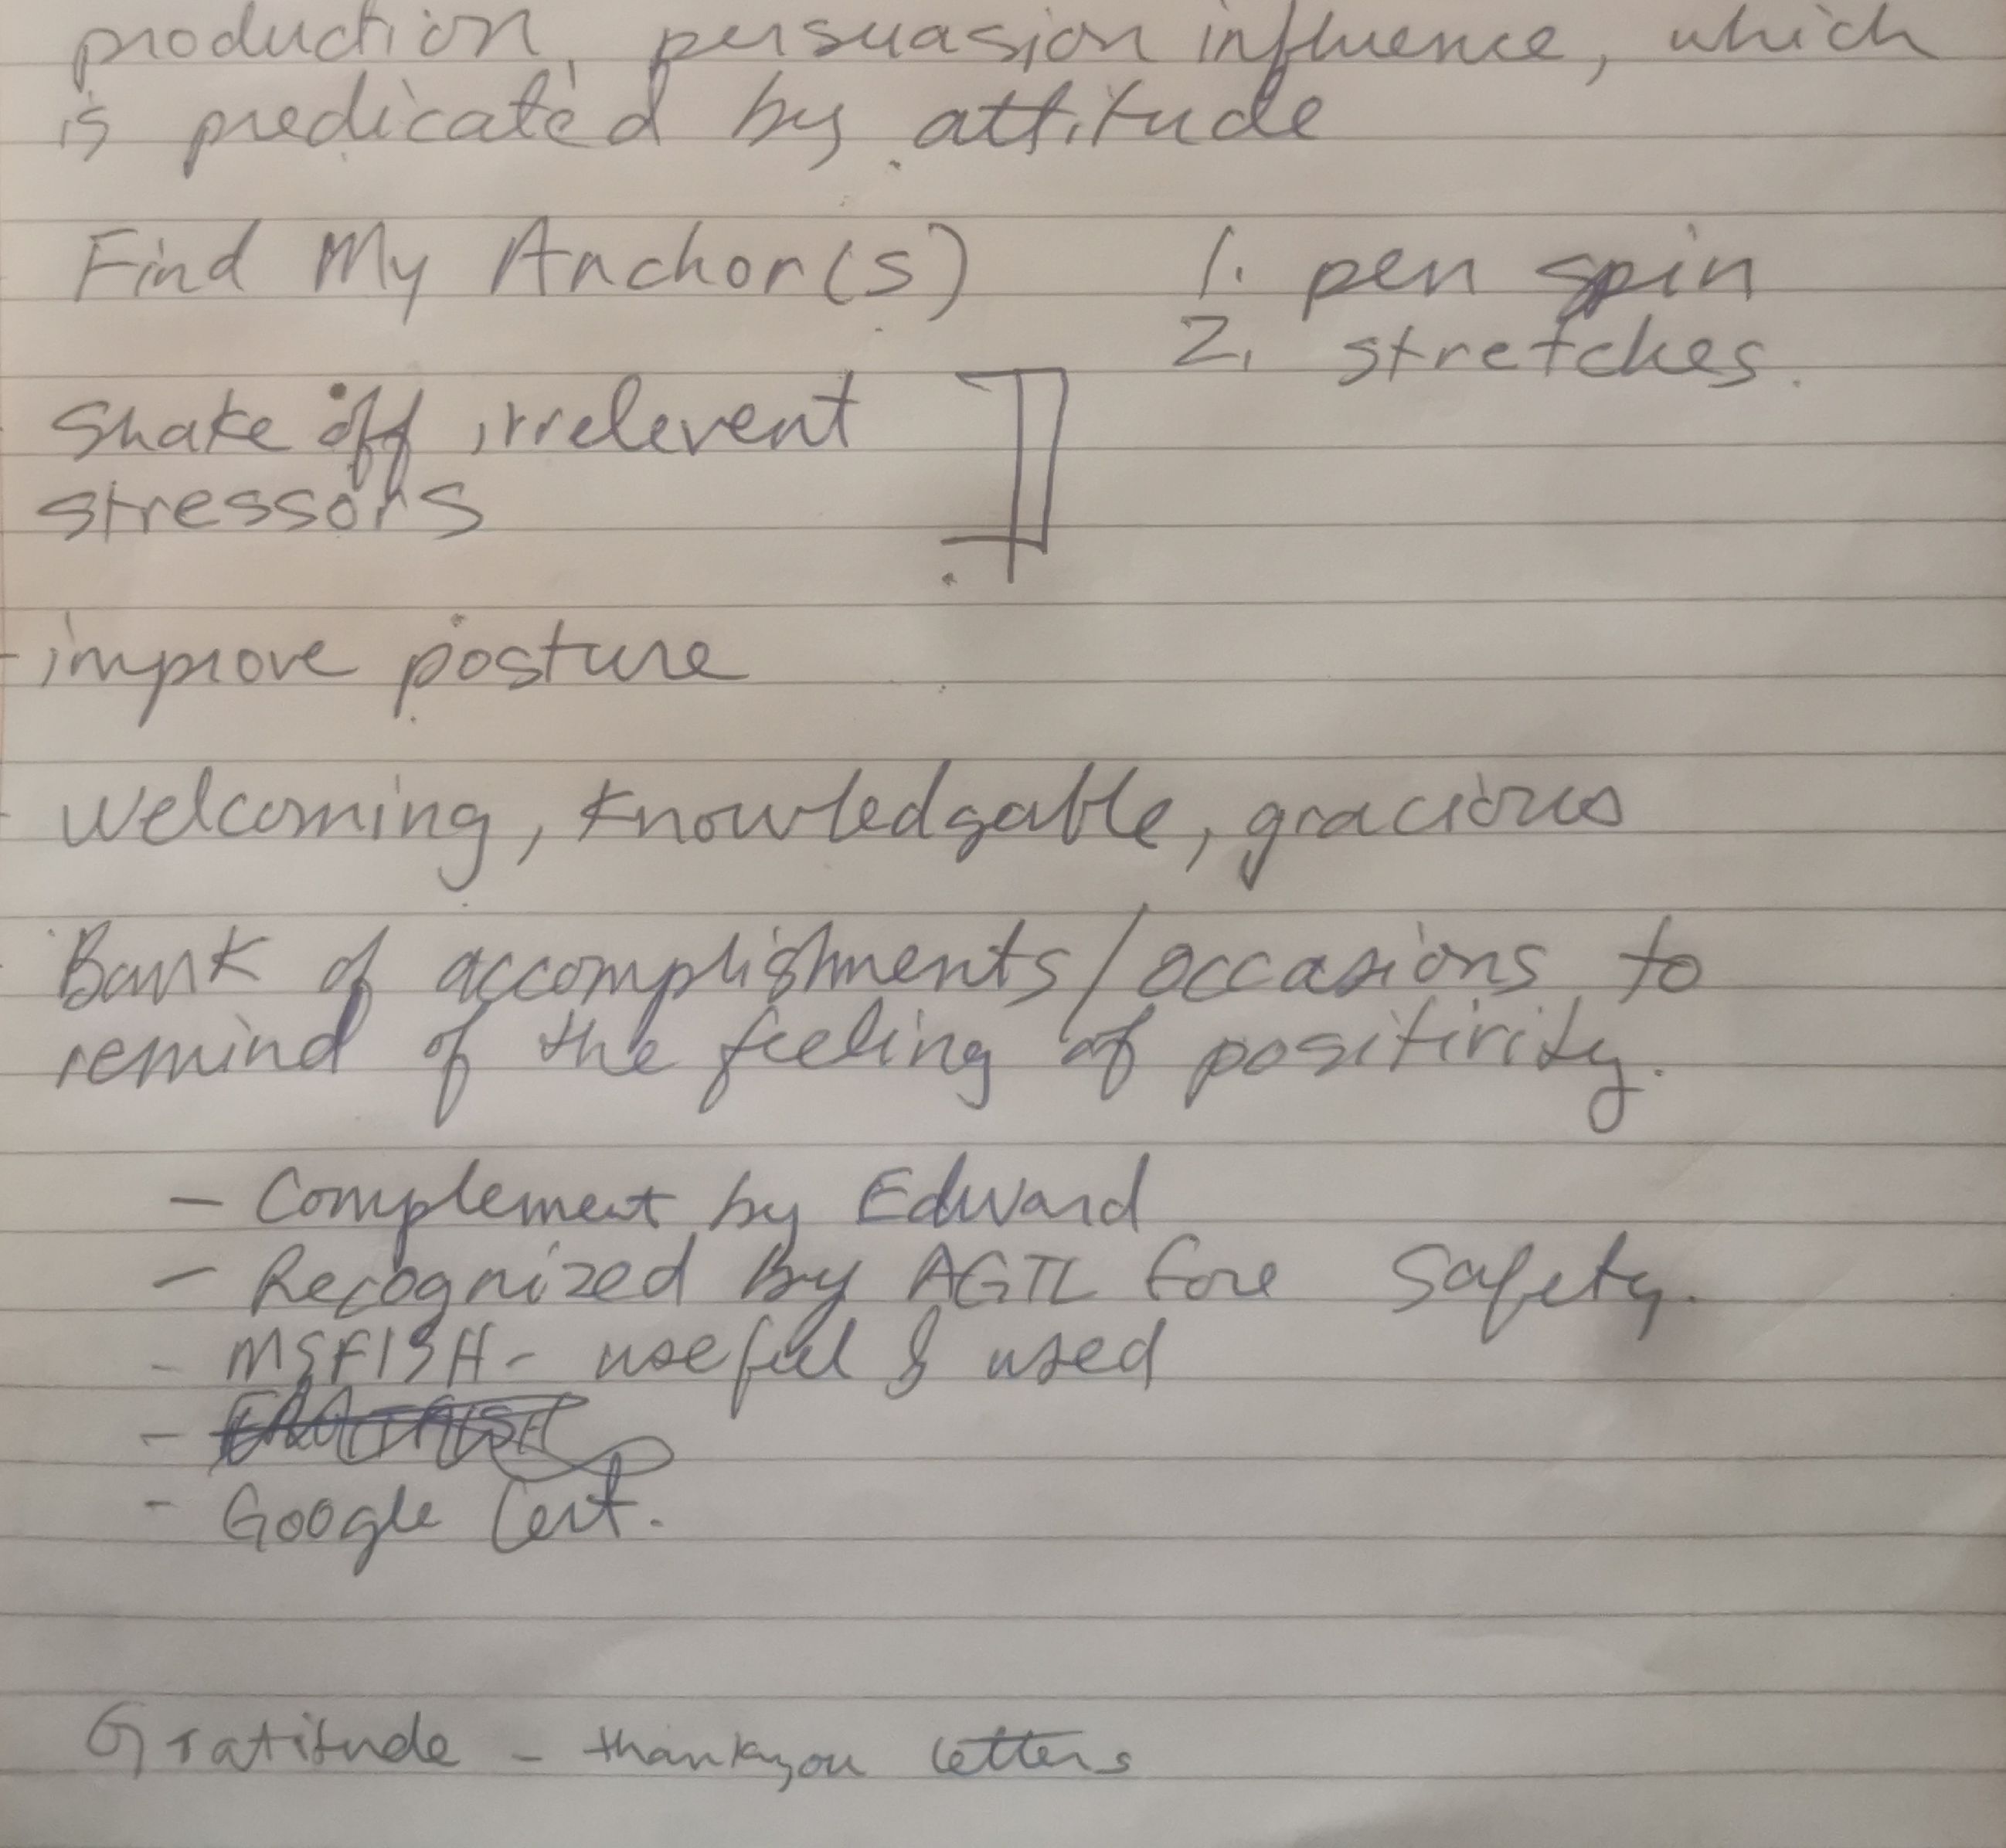 production, persuasion influence, which
is predicated by attitude
Find My Anchor(s)
1. pen spin
2. stretches.
Shake off irrelevent
stressors
improve posture
Welcoming, Knowledgable, gracious
Bank of accomplishments/occasions to
remind of the feeling of positivity.
- Complement by Edward
- Recognized by AGTL fore Safety.
- MSFISH - useful & used
-
- Google Cert.
Gratitude - thankyou letters